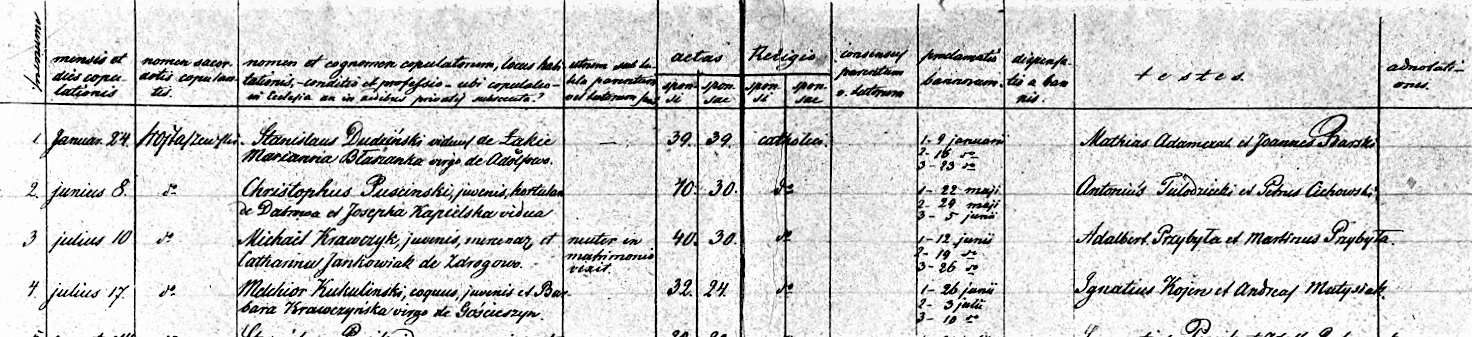 numerum
mensis et dies copulationis
nomen sacerdotis copulantis.
nomen et cognomen copulatorum, locus habitationis, conditio et professio - ubi copulatio in Ecclesia an in aedibus privatis subsecuta?
utrum sub tutela parentum vel tutorum
aetas
sponsi
sponsae
Religio
sponsi
sponsae
consensus parentum v. tutorum
proclamatio bannorum.
dispensatis a bannis.
testes.
adnotationes.
1. Januar. 24. Wojtaszewski. Stanislaus Dudziński viduus de Łąkie — 39. 39. catholici. 1-9 januarii Mathias Adamczak et Joannes Barski
Marianna Błasianka virgo de Adolfowo. 2- 16 do
3- 23 do
2. junius 8. do Christophus Pusinski, juvenis, hortulan 70. 30. do 1- 22 maji Antonius Tulodziecki et Petrus Cichowski,
de Dabrowa et Josepha Kapielska vidua 2- 29 maji
3- 5 junii
3 julius 10 do Michaël Krawczyk, juvenis, mercenaz et neuter in 40. 30. do 1- 12 junii Adalbert. Przybyła et Martinus Przybyła.
Catharina Jankowiak de Zdrogowo. matrimonio 2- 19 do
vixit. 3- 26 do
4. julius 17. do Melchior Kukulinski, coquus, juvenis et Bar- 32. 24. do 1- 26 junii Ignatius Kojen et Andreas Matysiak.
bara Krawczyńska virgo de Gościeszyn. 2- 3 julii
3- 10 do